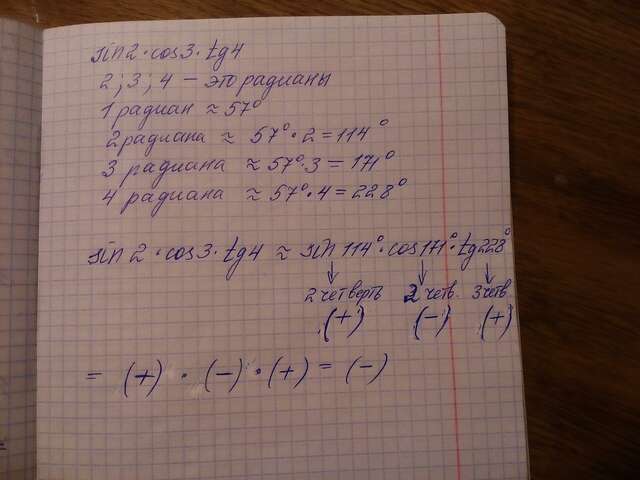 sin2·cos3·tg4
2; 3; 4 – это радианы
1 радиан ≈ 57°
2 радиана ≈ 57°·2 = 114°
3 радиана ≈ 57°·3 = 171°
4 радиана ≈ 57°·4 = 228°
sin2·cos3·tg4 ≈ sin114°·cos171°·tg228°
↓ ↓ ↓
2 четверть 2 четв. 3 четв.
(+) (-) (+)
= (+) · (-) · (+) = (-)